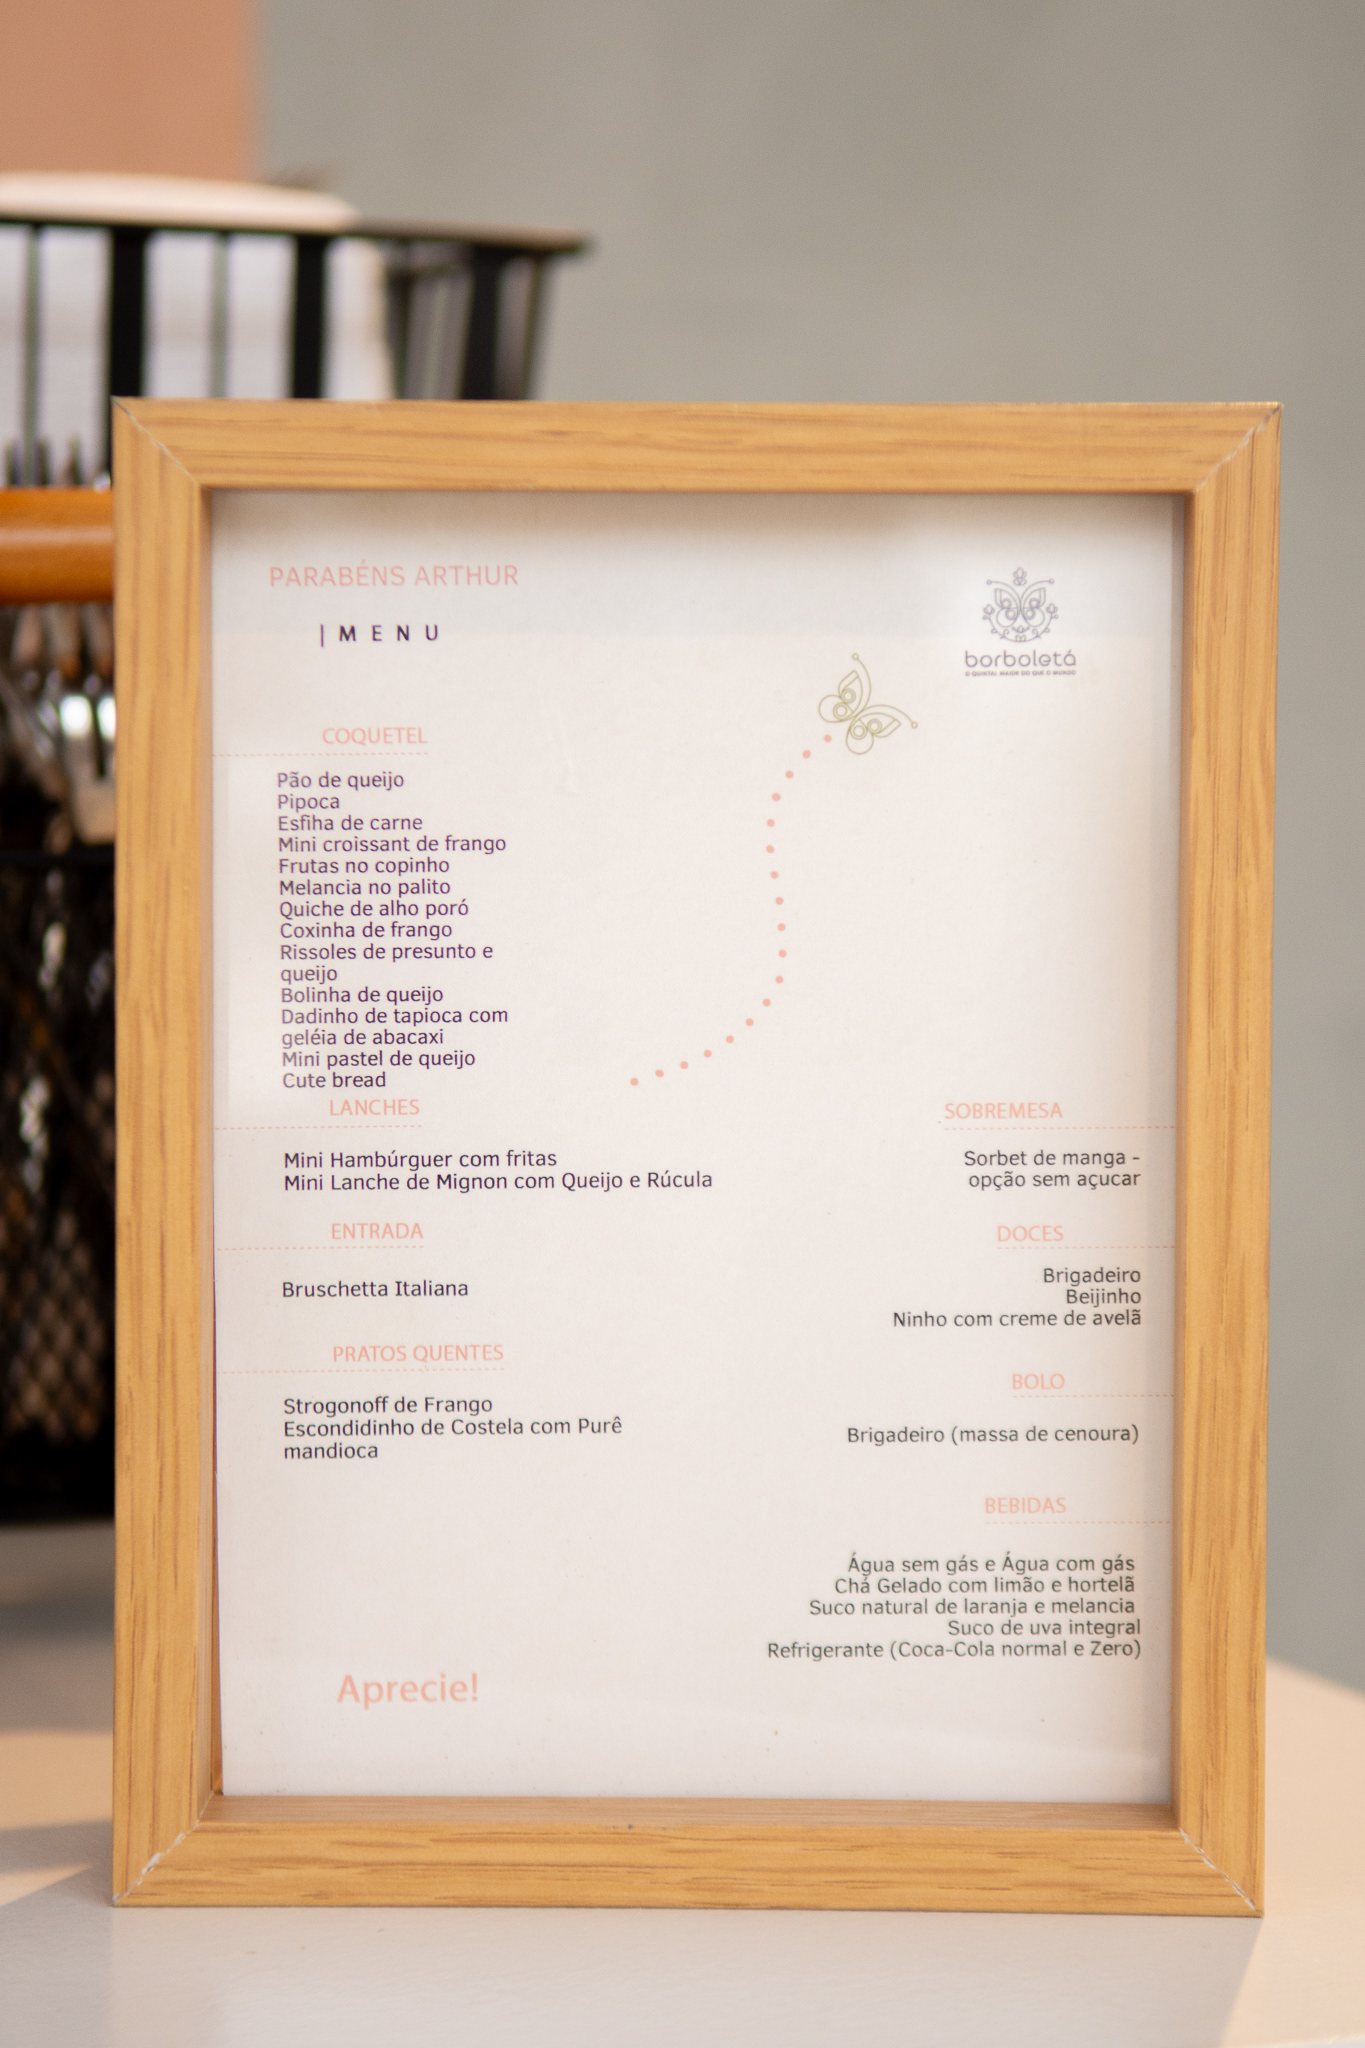 PARABÉNS ARTHUR
| M E N U
borboletá
O QUINTAL MAIOR DO QUE O MUNDO
COQUETEL
Pão de queijo
Pipoca
Esfiha de carne
Mini croissant de frango
Frutas no copinho
Melancia no palito
Quiche de alho poró
Coxinha de frango
Rissoles de presunto e
queijo
Bolinha de queijo
Dadinho de tapioca com
geléia de abacaxi
Mini pastel de queijo
Cute bread
LANCHES
Mini Hambúrguer com fritas
Mini Lanche de Mignon com Queijo e Rúcula
ENTRADA
Bruschetta Italiana
PRATOS QUENTES
Strogonoff de Frango
Escondidinho de Costela com Purê
mandioca
SOBREMESA
Sorbet de manga -
opção sem açucar
DOCES
Brigadeiro
Beijinho
Ninho com creme de avelã
BOLO
Brigadeiro (massa de cenoura)
BEBIDAS
Água sem gás e Água com gás
Chá Gelado com limão e hortelã
Suco natural de laranja e melancia
Suco de uva integral
Refrigerante (Coca-Cola normal e Zero)
Aprecie!